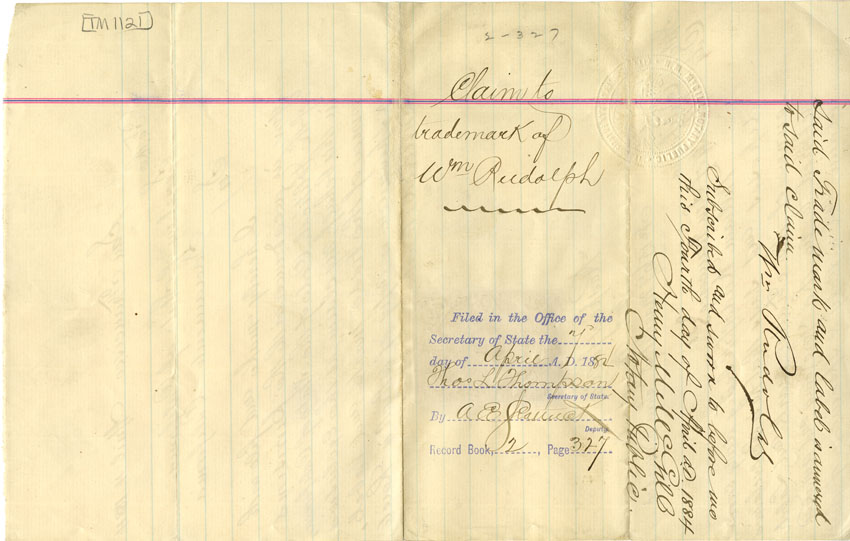 [TM 1121]
2-327
Claim to
trademark of
Wm Rudolph
Filed in the Office of the
Secretary of State the
day of April A.D. 1884
Thos L. Thompson
Secretary of State.
By A E
Deputy
Record Book, 2, Page 327
said Trade mark and labels
to said claim.
Wm Rudolph
Subscribed and sworn to before me
this Fourth day of April AD 1884
Henry
Notary Public.